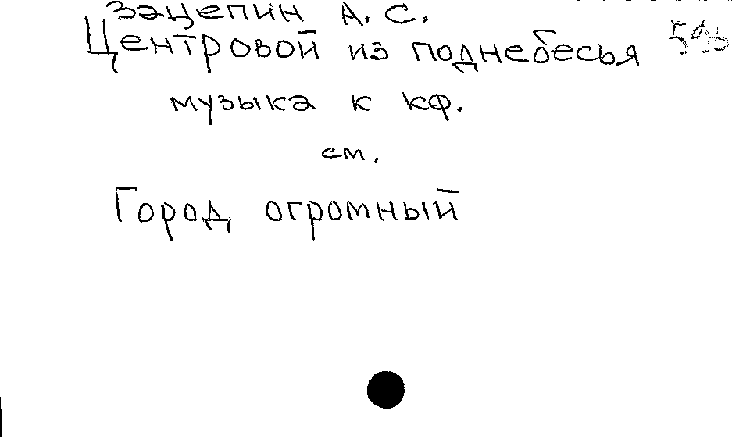 Зацепин А. С.
Центровой из поднебесья
музыка к кф.
см.
Город огромный